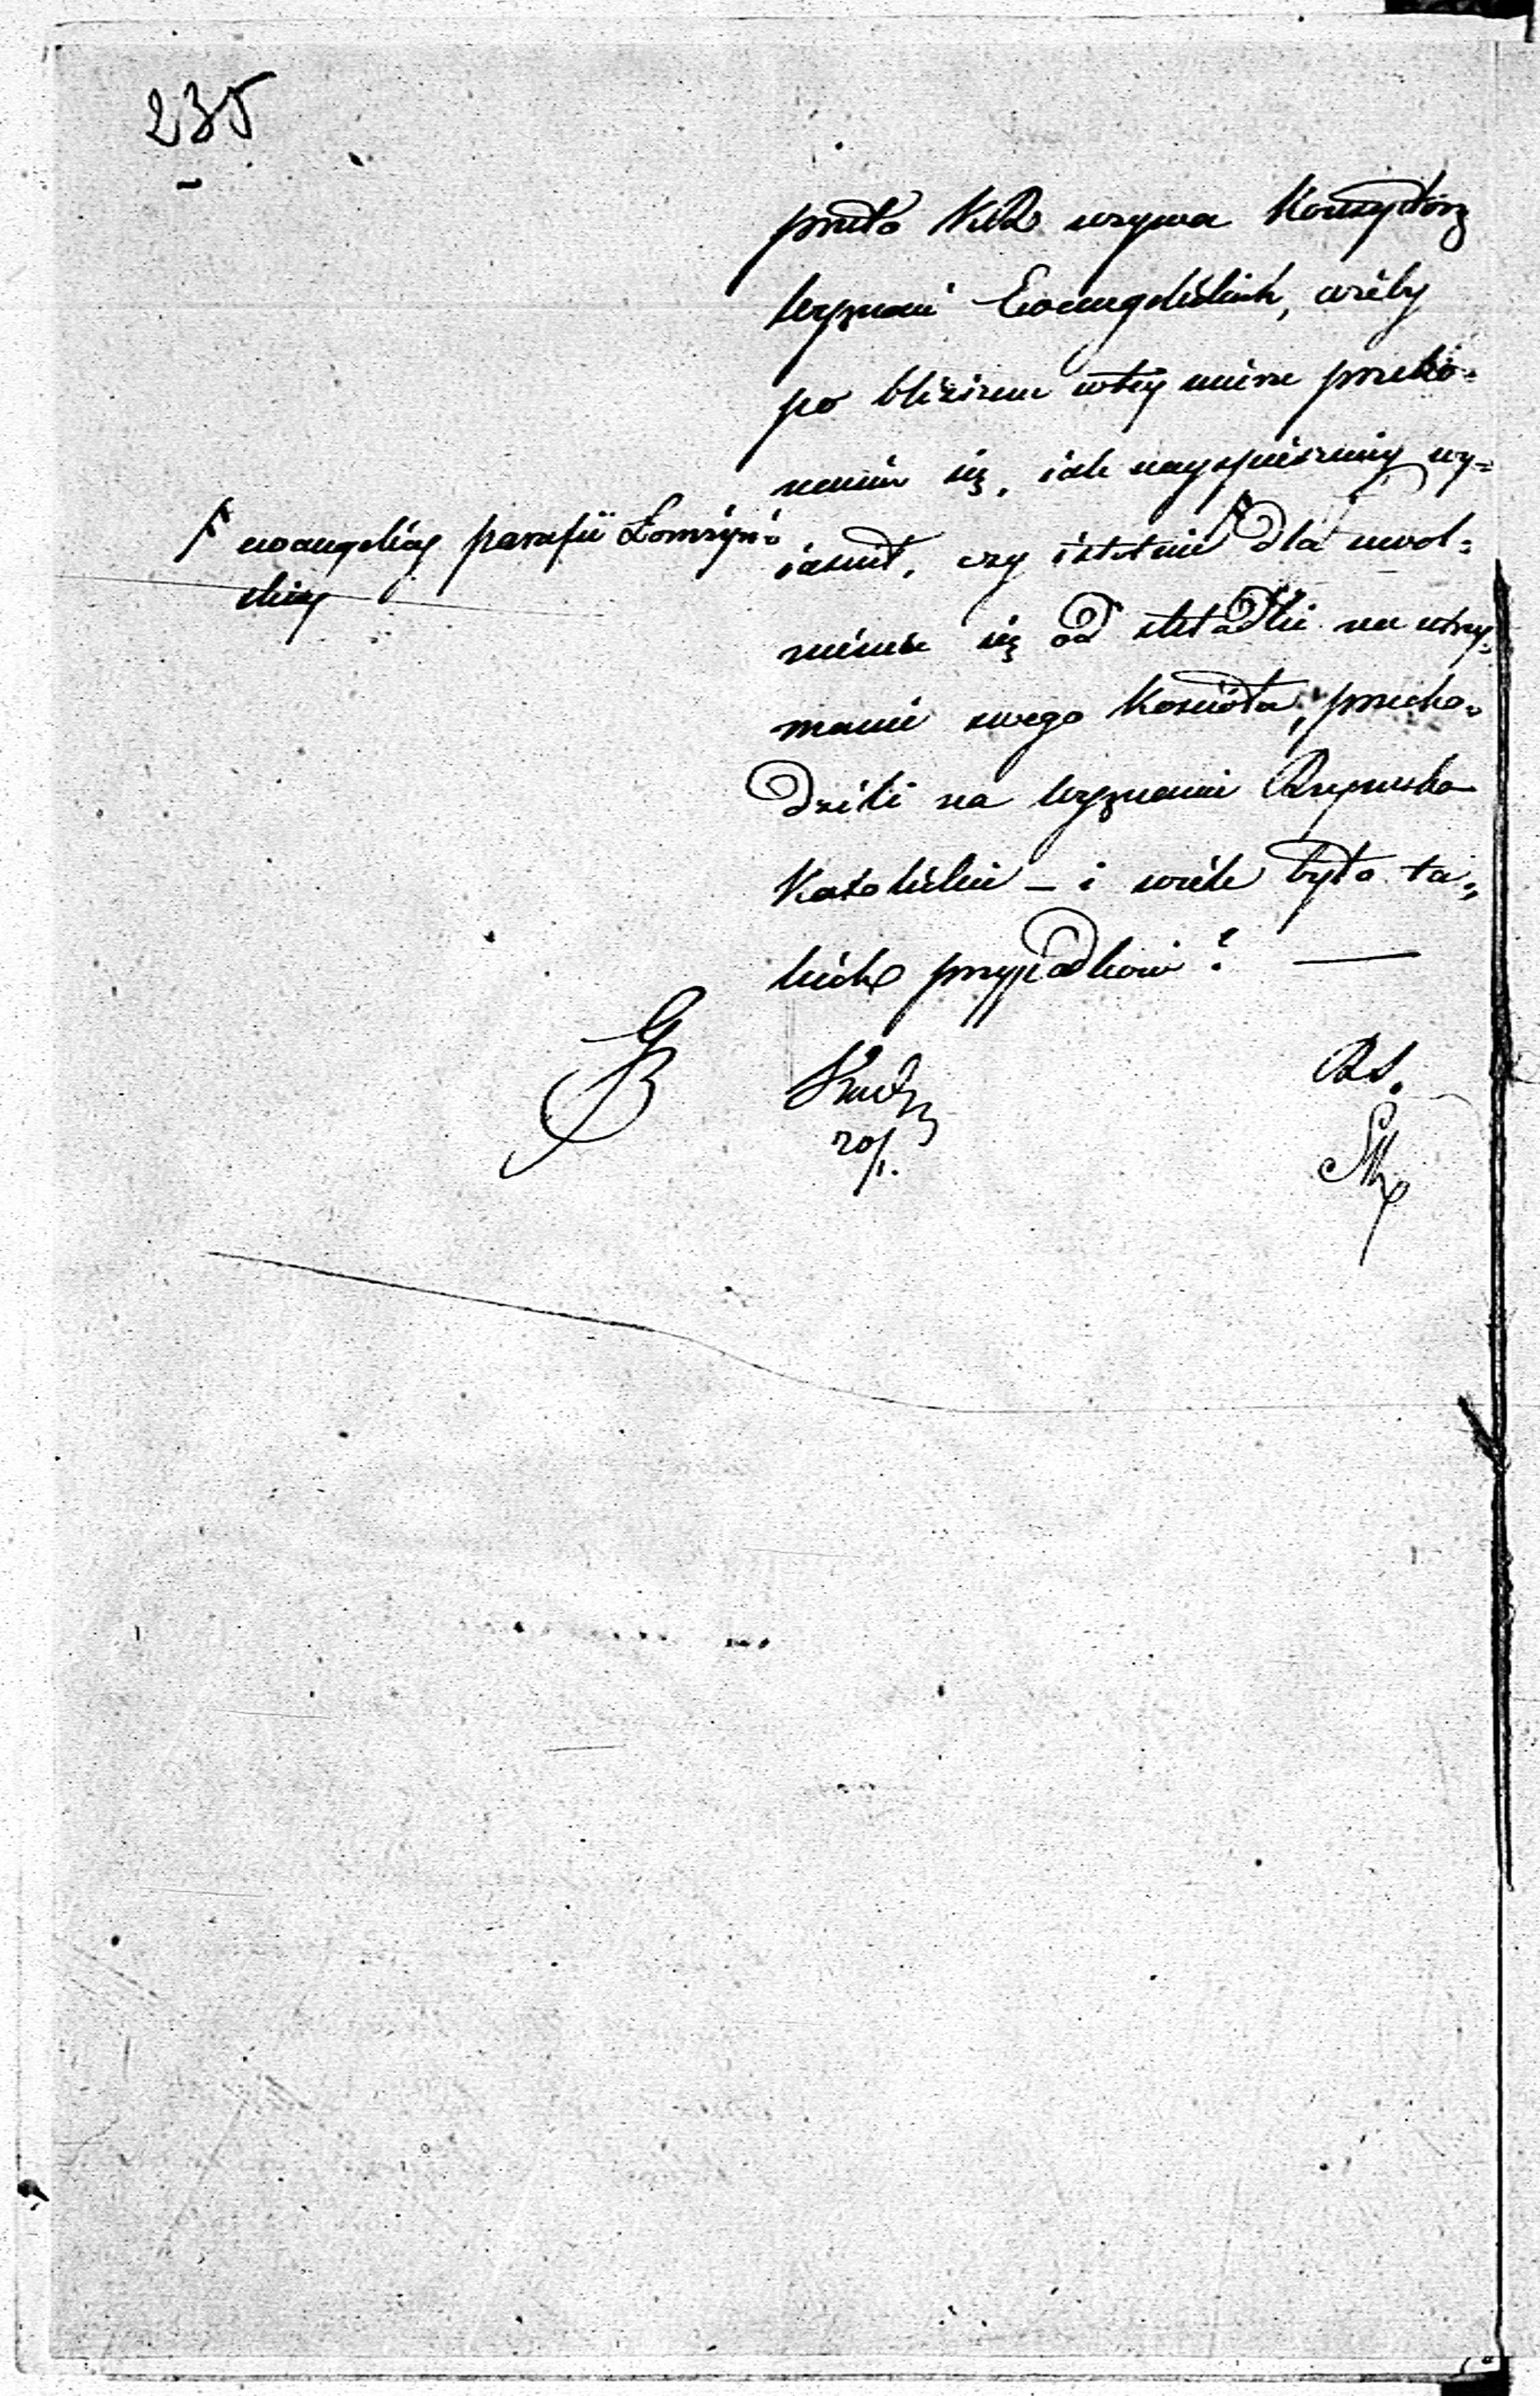 235
przeto KRS wzywa Konsystorz
Wyznań Ewangelickich, ażeby
po bliższem w tey mierze przeko=
naniu się, iak nayspieszniey wy=
iaśnił, czy istotnie Ꞙ dla uwol=
nienia się od składki na utrzy=
manie swego Kościoła, przecho=
dzili na wyznanie Rzymsko
Katolickie – i wiele było ta=
kich przypadków? —
Ꞙ ewangelicy parafii Łomżyń=
skiey
20/1.